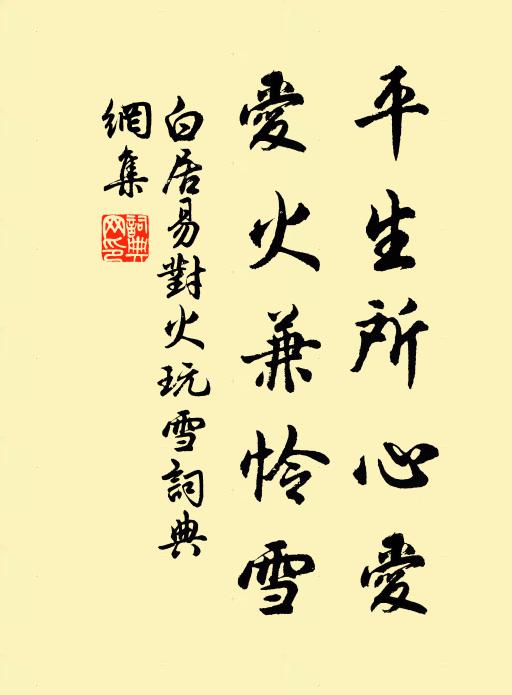 平生所心愛
愛火兼怜雪
白居易對火玩雪詞典
網集
詞典
网印